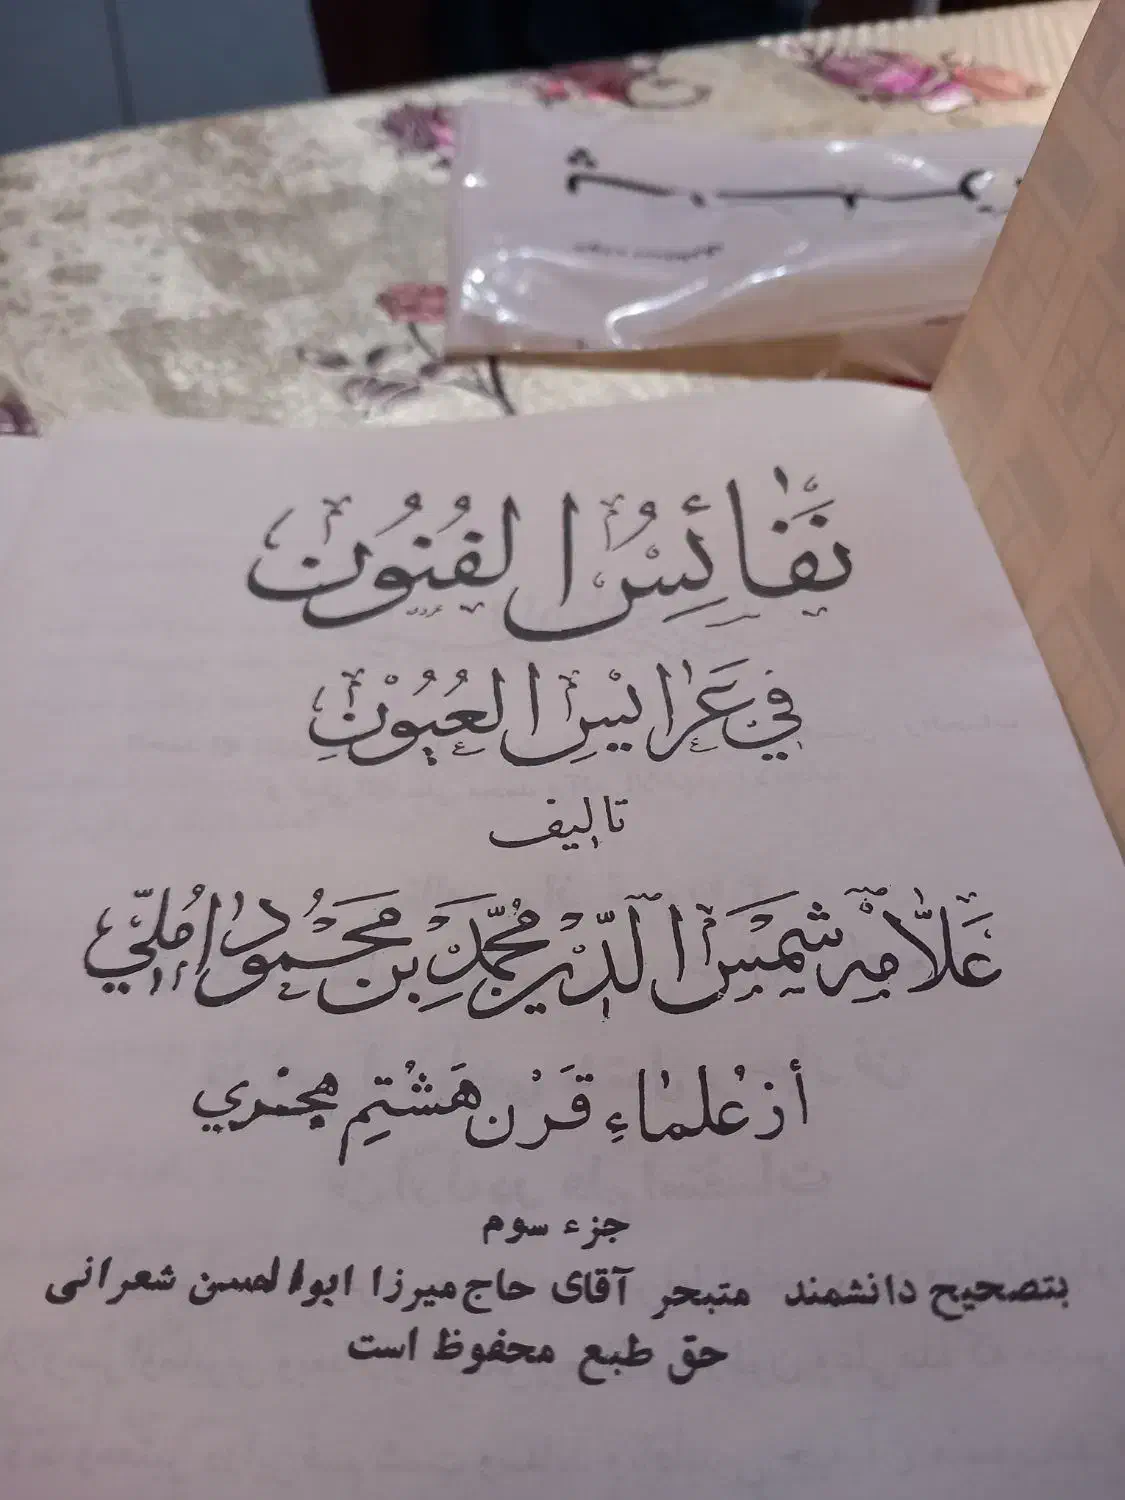 نَفَائِسُ الفُنُون
فِي عَرَايِسِ العُيُونِ
تالیف
عَلاّمه شَمْسُ الدّين مُحَمَّد بن مَحْمُود آمُلي
أز عُلماءِ قَرْن هَشْتِم هِجْري
جزء سوم
بتصحیح دانشمند متبحر آقای حاج میرزا ابوالحسن شعرانی
حق طبع محفوظ است